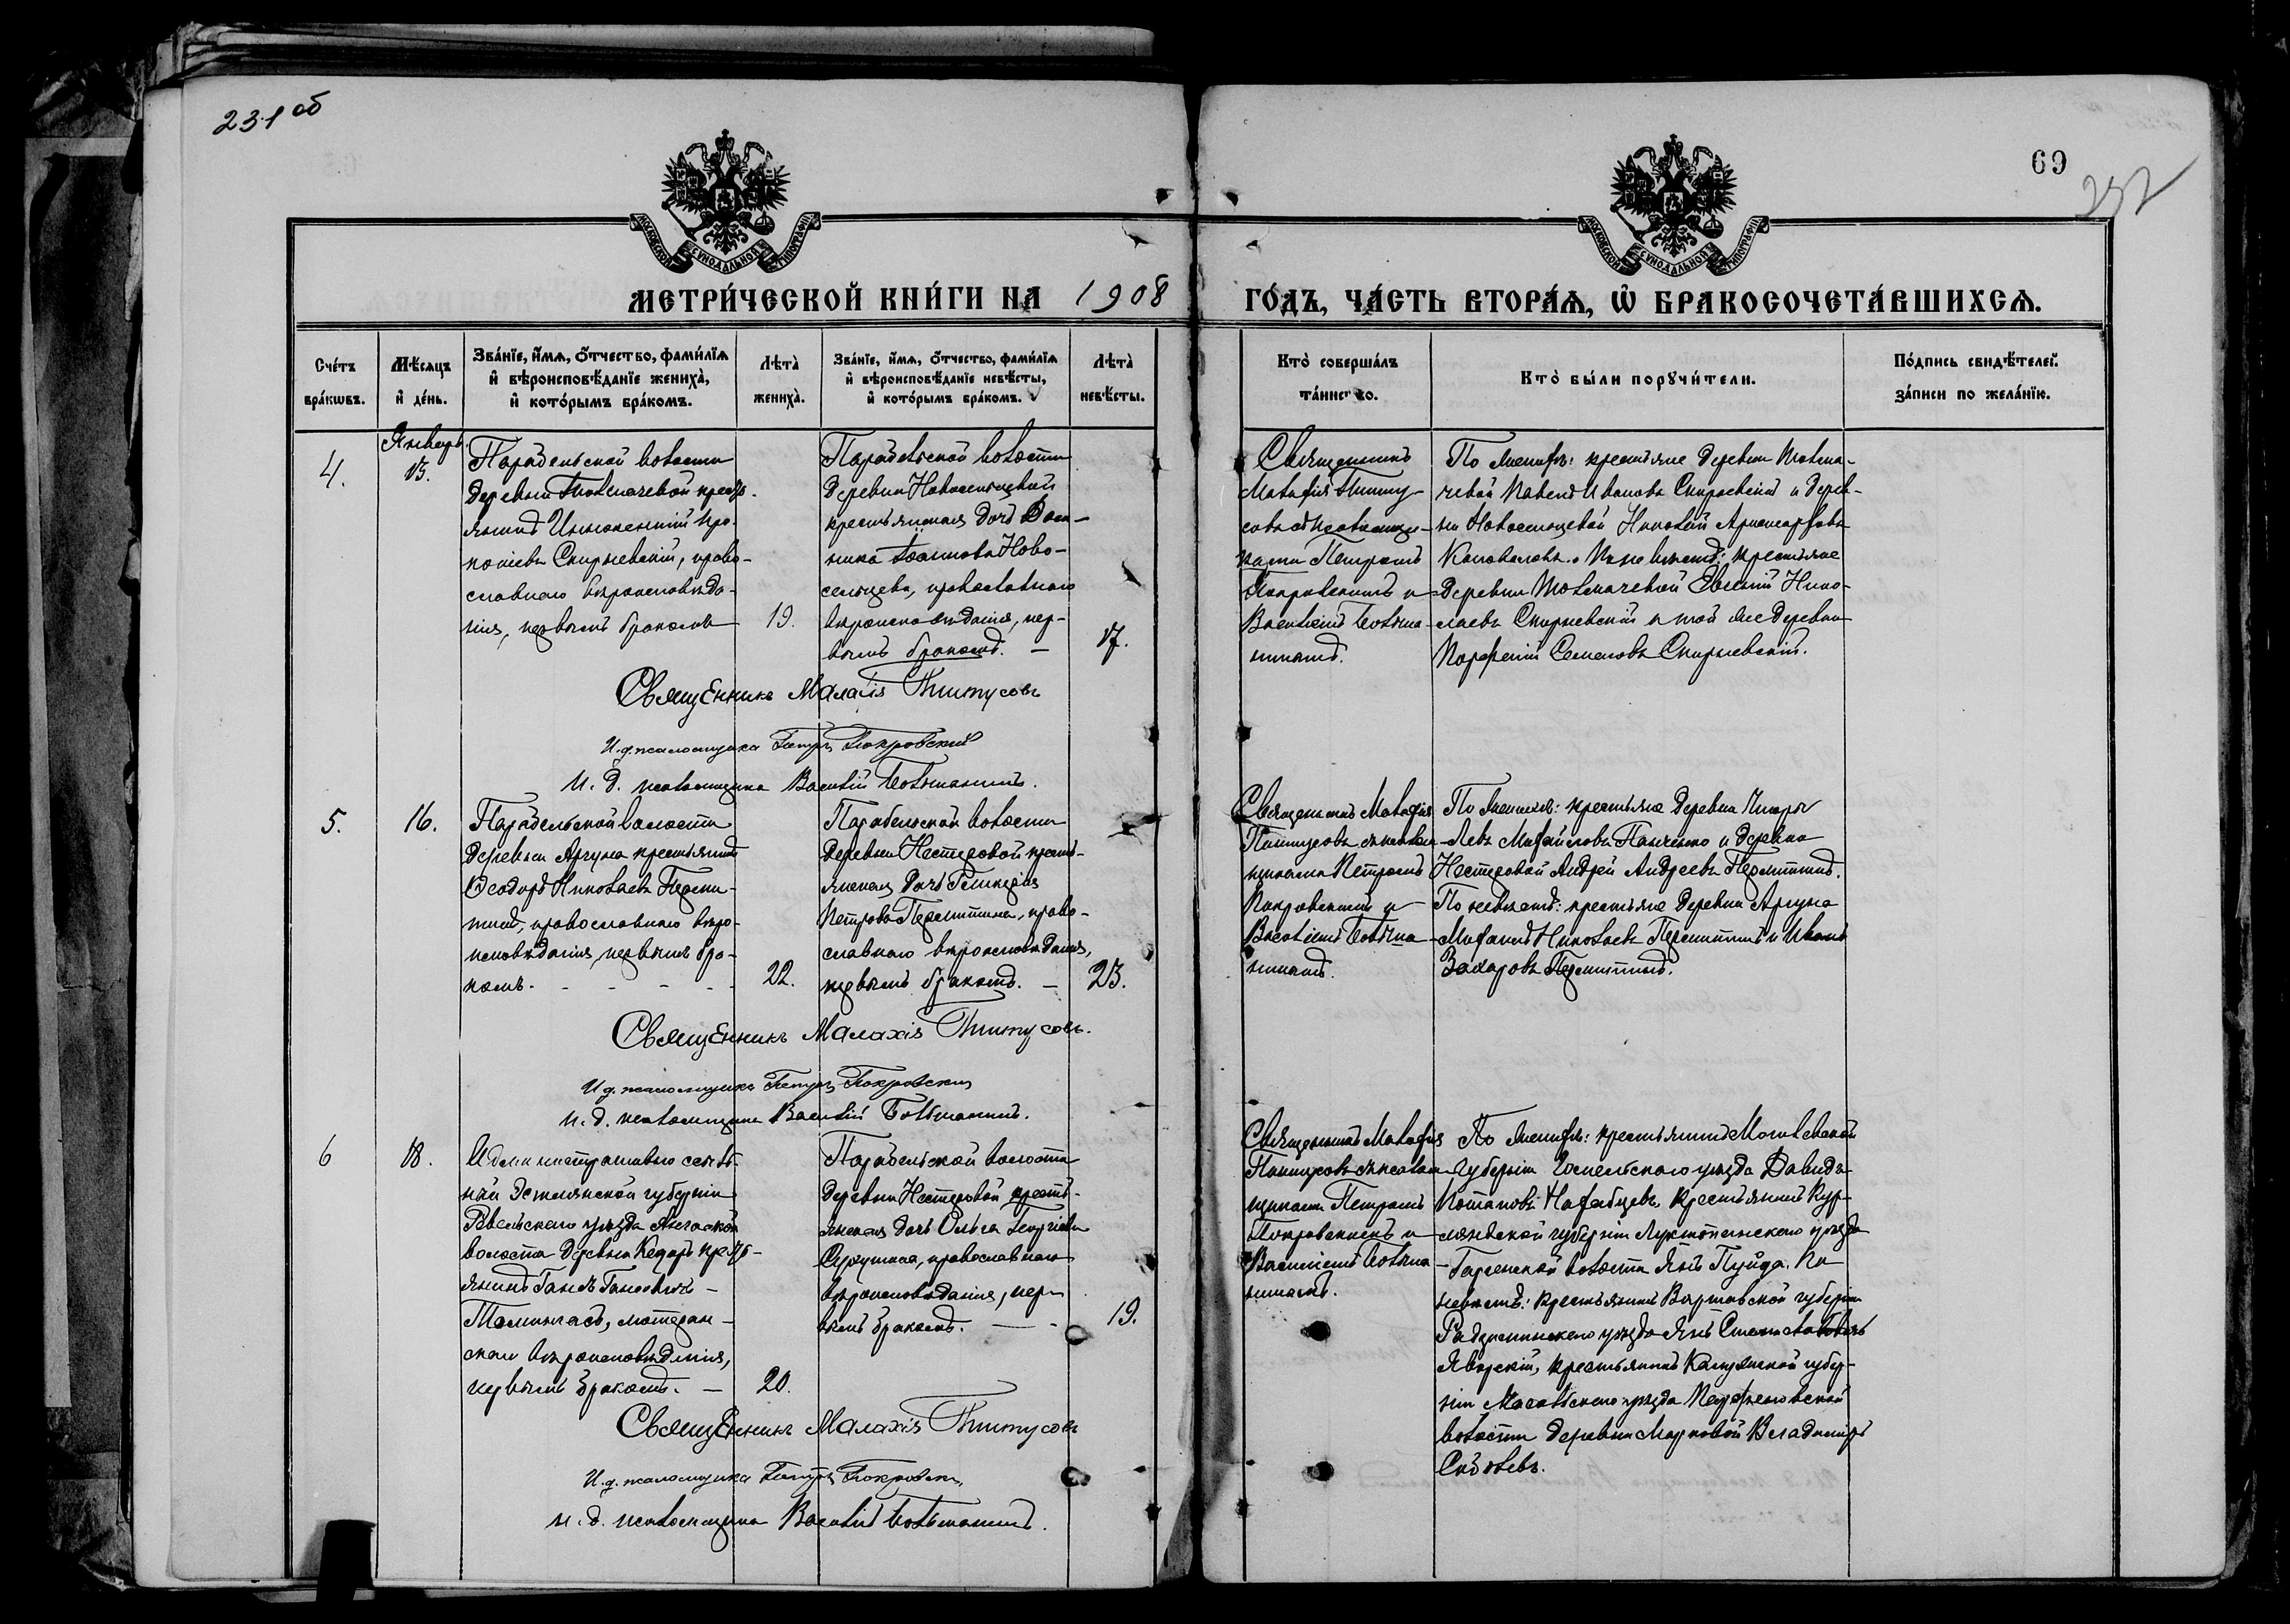 231 об
69
232
МОСКОВСКОЙ СУНОДАЛЬНОЙ ТИПОГРАФІИ
МОСКОВСКОЙ СУНОДАЛЬНОЙ ТИПОГРАФІИ
МЕТРИ́ЧЕСКОЙ КНИ́ГИ НА 1908
ГО́ДЪ, ЧА́СТЬ ВТОРА́Ѧ, Ѡ БРАКОСОЧЕТА́ВШИХСѦ.
Сче́тъ бра́кѡвъ.
Мѣ́сяцъ и де́нь.
Зва́нїе, и́мѧ, о́тчество, фами́лїѧ и вѣроисповѣ́данїе жениха̀, и кото́рымъ бра́комъ.
Лѣта̀ жениха̀.
Зва́нїе, и́мѧ, о́тчество, фами́лїѧ и вѣроисповѣ́данїе невѣ́сты, и кото́рымъ бра́комъ.
Лѣта̀ невѣ́сты.
Кто̀ соверша́лъ та́инство.
Кто̀ бы́ли порꙋчи́тели.
По́дпись свидѣ́телей. за́писи по жела́нїю.
4.
Январь
13.
Парабельской волости
деревни Толмачевой кресть-
янинъ Иннокентій Про-
копіевъ Смирневскій, право-
славнаго вѣроисповѣда-
нія, первымъ бракомъ
19.
Парабельской волости
деревни Новосельцевой
крестьянская дочь Дом-
ника Іоаннова Ново-
сельцева, православнаго
вѣроисповѣданія, пер-
вымъ бракомъ. —
17.
Священникъ
Малахія Титу-
совъ съ псаломщи-
ками Петромъ
Покровскимъ и
Василіемъ Ботьма-
нинымъ.
По женихѣ: крестьяне деревни Толма-
чевой Павелъ Ивановъ и дерев-
ни Новосельцевой Николай
Коноваловъ. По невѣстѣ: крестьяне
деревни Толмачевой Евгеній Нико-
лаевъ и той же деревни
Порфирій Семеновъ
Священникъ Малахія Титусовъ
И. д. псаломщика Петръ Покровскій
И. д. псаломщика Василій Ботьманинъ.
5.
16.
Парабельской волости
деревни Аргуна крестьянинъ
Ѳеодоръ Николаевъ Перми-
тинъ, православнаго вѣро-
исповѣданія, первымъ бра-
комъ. - - - -
22.
Парабельской волости
деревни Нестеровой кресть-
янская дочь Гликерія
Петрова Пермитина, право-
славнаго вѣроисповѣданія,
первымъ бракомъ. —
23.
Священникъ Малахія
Титусовъ съ псалом-
щиками Петромъ
Покровскимъ и
Василіемъ Ботьма-
нинымъ.
По женихѣ: крестьяне деревни Чигары
Левъ Михайловъ Панченко и деревни
Нестеровой Андрей Андреевъ Пермитинъ.
По невѣстѣ: крестьяне деревни Аргуна
Михаилъ Николаевъ Пермитинъ и Иванъ
Захаровъ Пермитинъ.
Священникъ Малахія Титусовъ.
И. д. псаломщика Петръ Покровскій
И. д. псаломщика Василій Ботьманинъ.
6
18.
Административно ссыль-
ный Эстляндской губерніи
Ревельскаго уѣзда
волости деревни крестъ-
янинъ Гансъ Гансовичъ
лютеран-
скаго вѣроисповѣданія,
первымъ бракомъ. —
20.
Парабельской волости
деревни Нестеровой кресть-
янская дочь Ольга Георгіева
православнаго
вѣроисповѣданія, пер-
вымъ бракомъ. — -
19.
Священникъ Малахія
Титусовъ съ псалом-
щиками Петромъ
Покровскимъ и
Василіемъ Ботьма-
нинымъ.
По женихѣ: крестьянинъ Могилевской
губерніи Гомельскаго уѣзда Давидъ
Потаповъ крестьянинъ Кур-
ляндской губерніи уѣзда
волости Янъ Пуйда. По
невѣстѣ: крестьянинъ Варшавской губерніи
Радзиминскаго уѣзда Янъ Станиславовичъ
Яворскій, крестьянинъ Калужской губер-
ніи Мосальскаго уѣзда
волости деревни Марковой Владиміръ
Священникъ Малахія Титусовъ
И. д. псаломщика Петръ Покровскій
И. д. псаломщика Василій Ботьманинъ.